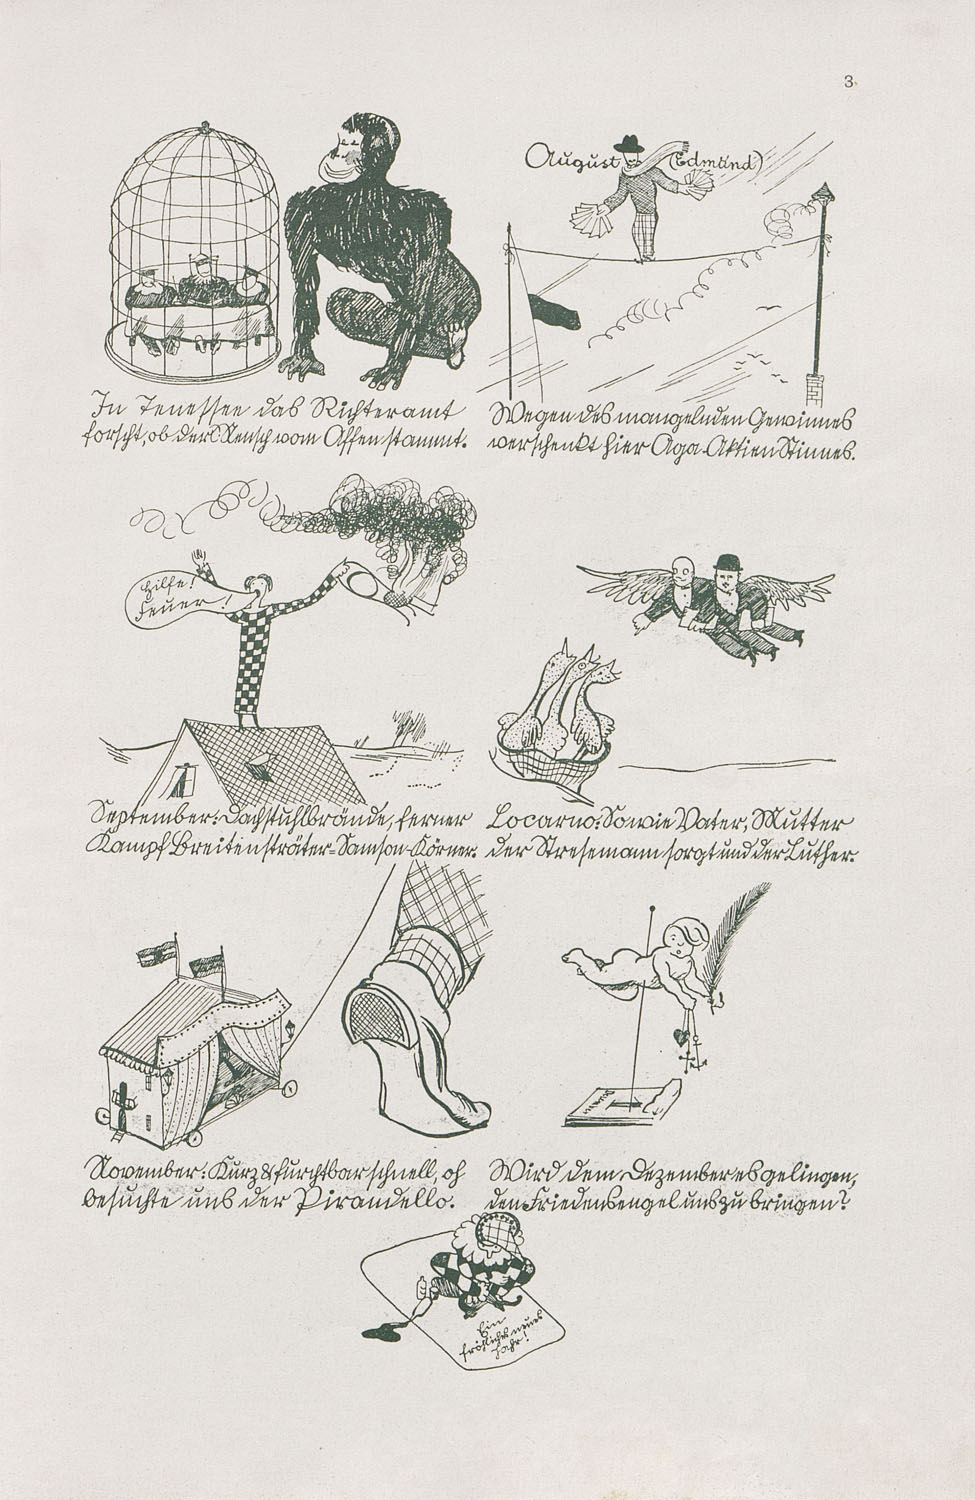 3
August (Edmund)
In Tenessee das Richteramt
forscht, ob der Mensch vom Affen stammt.
Wegen des mangelnden Gewinnes
verschenkt hier Aga-Aktien Stinnes.
Hilfe!
Feuer!
September: Dachstuhlbrände, ferner
Kampf Breitensträter-Samson-Körner.
Locarno: Sowie Vater, Mutter
der Stresemann sorgt und der Luther.
November: Kurz & furchtbar schnell, oh
besuchte uns der Pirandello.
Wird dem Dezember es gelingen,
den Friedensengel uns zu bringen?
Ein
fröhliches neues
Jahr!